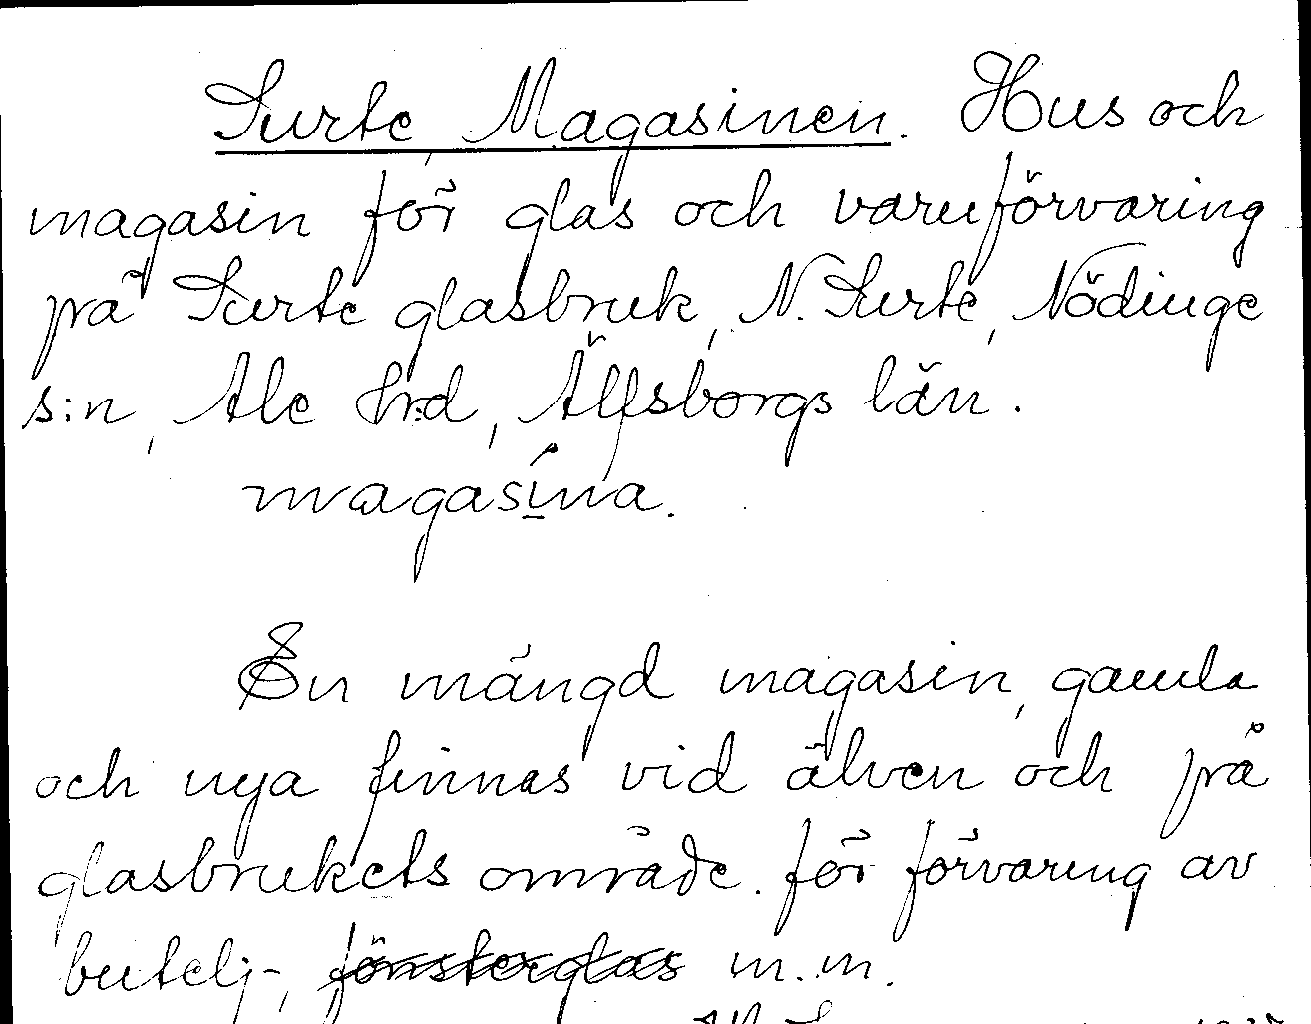 Surte, Magasinen. Hus och
magasin för glas och varuförvaring
på Surte glasbruk, N. Surte, Nödinge
s:n, Ale hrd, Älfsborgs län.
magasína.
En mängd magasin, gamla
och nya finnas vid älven och på
glasbrukets område. för förvaring av
butelj-, fönsterglas m.m.